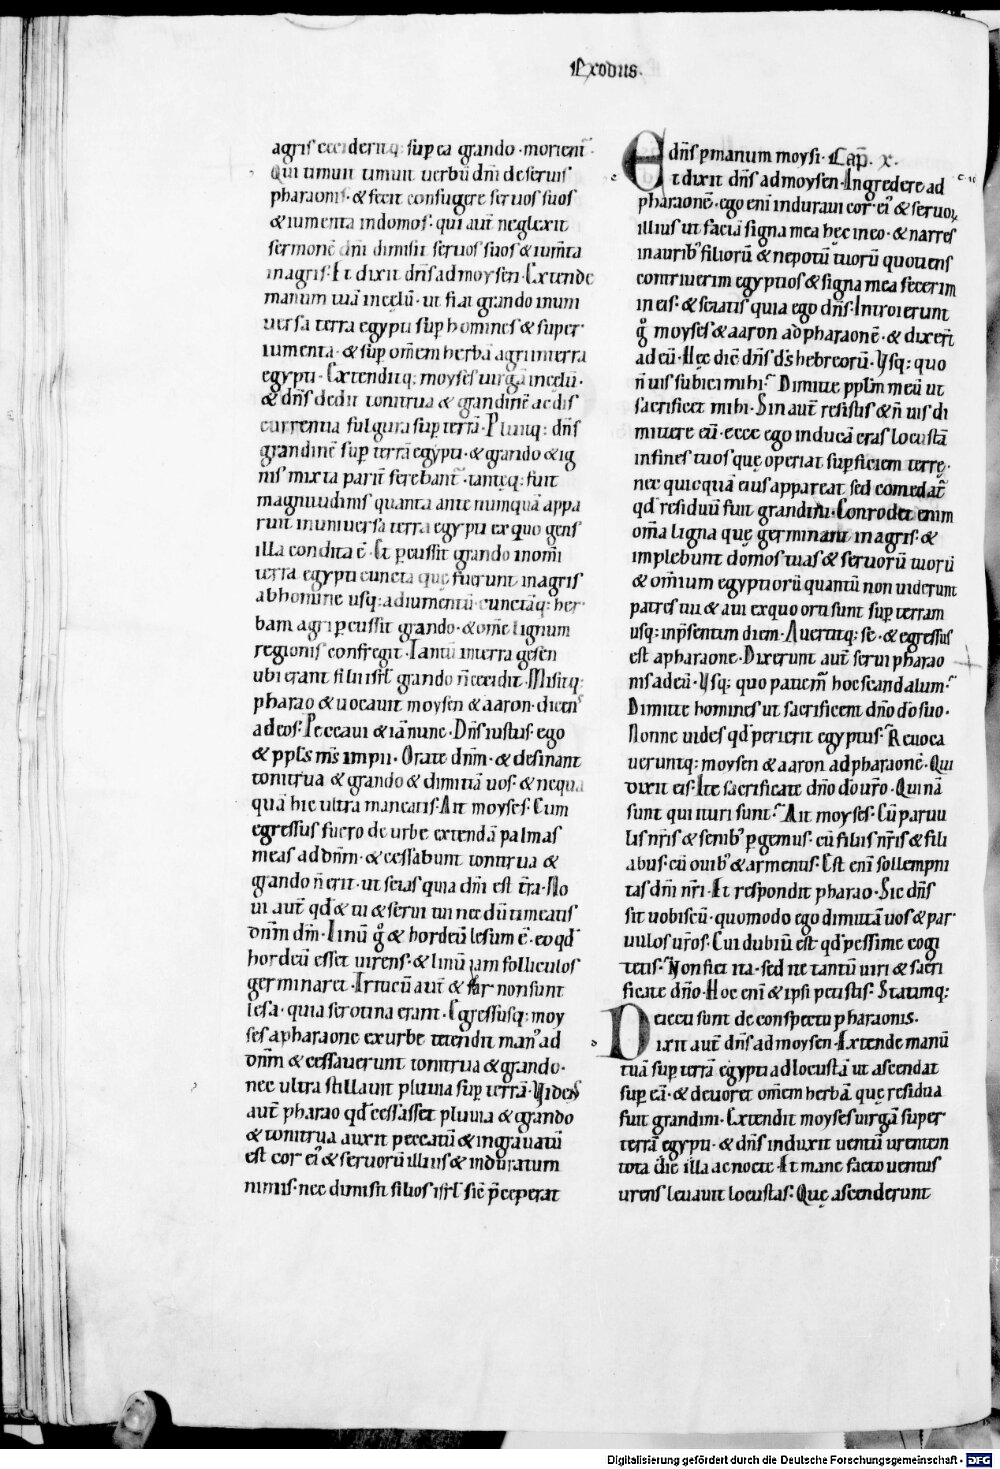 Exodus.
agris cecideritq; sup ea grando · morient᷑ ·
Qui timuit timuit uerbū dn̄i de seruis
pharaonis · & fecit confugere seruos suos
& iumenta in domos · qui aut̄ neglexit
sermonē dn̄i dimisit seruos suos & ium̄ta
in agris · Et dixit dn̄s ad moysen · Extende
manum tuā in cęlū · ut fiat grando in uni
uersa terra egypti sup homines & super
iumenta · & sup om̄em herbā agri in terra
egypti · Extenditq; moyses uirgā in cęlū ·
& dn̄s dedit tonitrua & grandinē ac dis
currentia fulgura sup terrā · Pluitq; dn̄s
grandinē sup terrā egypti · & grando & ig
nis mixta parit̄ ferebant᷑ · tantęq; fuit
magnitudinis quanta ante nunquā appa
ruit in uniuersa terra egypti ex quo gens
illa condita ē · Et pcussit grando in om̄i
terra egypti cuncta que fuerunt in agris
ab homine usq; ad iumentū · cunctāq; her
bam agri pcussit grando · & om̄e lignum
regionis confregit · Tantū in terra gesen
ubi erant filii isrl̄ grando n̄ cecidit · Misitq;
pharao & uocauit moysen & aaron · dicens
ad eos · Peccaui & iā nunc · Dn̄s iustus · ego
& ppl̄s m̄s impii · Orate dn̄m · & desinant
tonitrua & grando & dimittā uos · & nequa
quā hic ultra maneatis · Ait moyses · Cum
egressus fuero de urbe extendā palmas
meas ad dn̄m · & cessabunt tonitrua &
grando n̄ erit · ut scias quia dn̄i est t̄ra · No
ui aut̄ qd̄ & tu & serui tui nec dū timeatis
dn̄m dm̄ · Linū g̊ & hordeū lesum ē · eo qd̄
hordeū esset uirens · & linū iam folliculos
germinaret · Triticū aut̄ & far · non sunt
lesa · quia serotina erant · Egressusq; moy
ses a pharaone ex urbe tetendit man᷒ ad
dn̄m & cessauerunt tonitrua & grando ·
nec ultra stillauit pluuia sup terrā · Uidens
aut̄ pharao qd̄ cessasset pluuia & grando
& tonitrua auxit peccatū & ingrauatū
est cor ei᷒ & seruorū illius & induratum
nimis · nec dimisit filios isrl̄ sic̄ p̄ceperat
dn̄s p manum moysi · Cap̄. x.
Et dixit dn̄s ad moysen · Ingredere ad
pharaonē · ego eni induraui cor ei᷒ & seruoꝝ
illius ut faciā signa mea hęc in eo · & narres
in aurib᷒ filiorū & nepotū tuorū quotiens
contriuerim egyptios & signa mea fecerim
in eis · & sciatis quia ego dn̄s · Introierunt
g̊ moyses & aaron ad pharaonē · & dixer̄t
ad eū · Hęc dic̄ dn̄s ds̄ hebreorū · Usq; quo
n̄ uis subici mihi · Dimitte ppl̄m meū ut
sacrificet mihi · Sin aut̄ resistis & n̄ uis di
mittere eū · ecce ego inducā cras locustā
in fines tuos que operiat supficiem terrę ·
nec quicquā eius appareat sed comedat᷑
qd̄ residuū fuit grandini · Conrodet enim
om̄a ligna quę germinant in agris · &
implebunt domos tuas & seruorū tuorū
& om̄ium egyptiorū quantū non uiderunt
patres tui & aui ex quo orti sunt sup terram
usq; in p̄sentum diem · Auertitq; se · & egressus
est a pharaone · Dixerunt aut̄ serui pharao
nis ad eū · Usq; quo patiem᷑ hoc scandalum ·
Dimitte homines ut sacrificent dn̄o dō suo ·
Nonne uides qd̄ perierit egyptus · Reuoca
ueruntq; moysen & aaron ad pharaonē · Qui
dixit eis · Ite sacrificate dn̄o dō ur̄o · Qui nā
sunt qui ituri sunt · Ait moyses · Cū paruu
lis nr̄is & senib᷒ pgemus · cū filiis nr̄is & fili
abus · cū ouib᷒ & armentis · Est eni sollempni
tas dn̄i nr̄i · Et respondit pharao · Sic dn̄s
sit uobiscū · quomodo ego dimittā uos & par
uulos ur̄os · Cui dubiū est qd̄ pessime cogi
tetis · Non fiet ita · sed ite tantū uiri & sacri
ficate dn̄o · Hoc eni & ipsi petistis · Statimq;
eiecti sunt de conspectu pharaonis ·
Dixit aut̄ dn̄s ad moysen · Extende manū
tuā sup terrā egypti ad locustā ut ascendat
sup eā · & deuoret om̄em herbā quę residua
fuit grandini · Extendit moyses uirgā super
terrā egypti · & dn̄s induxit uentū urentem
tota die illa ac nocte · Et mane facto uentus
urens leuauit locustas · Quę ascenderunt
Digitalisierung gefördert durch die Deutsche Forschungsgemeinschaft - DFG